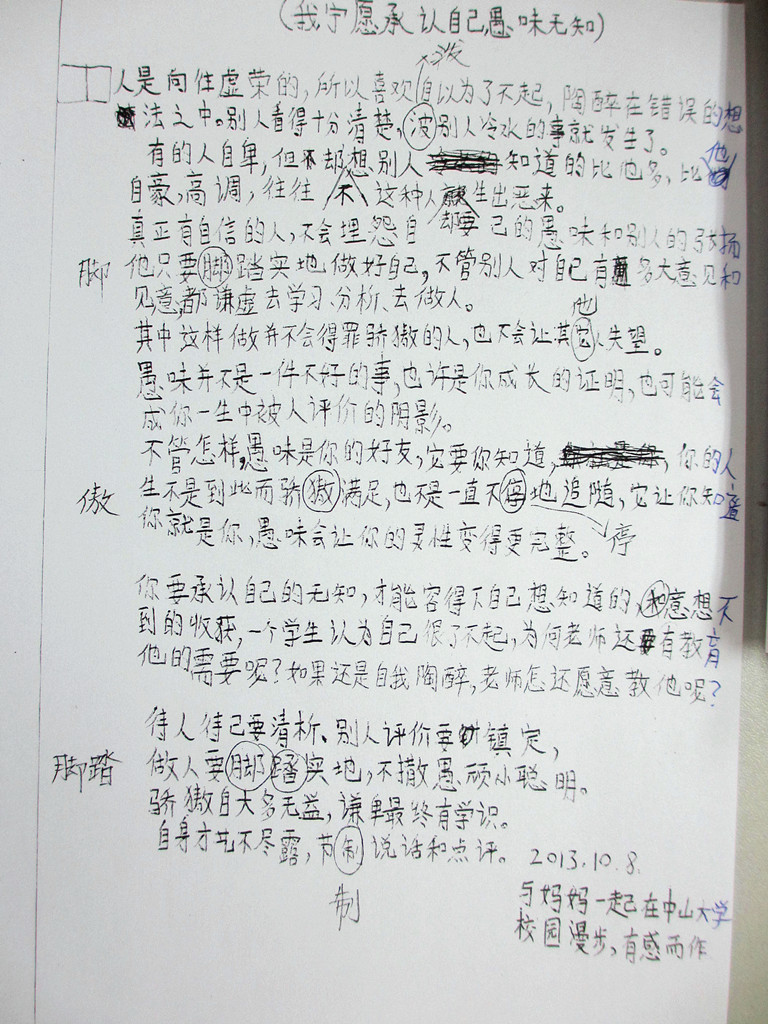 (我宁愿承认自己愚味无知)
不泼
人是向住虚荣的,所以喜欢自以为了不起,陶醉在错误的想
法之中。别人看得十分清楚,波别人冷水的事就发生了。
有的人自卑,但不却想别人知道的比他多,比他
自豪,高调,往往不这种人就生出恶来。
真正有自信的人,不会埋怨自却要己的愚味和别人的张扬
脚 他只要脚踏实地做好自己,不管别人对自己有多大意见和
见意,都谦虚去学习、分析、去做人。
他
其中这样做并不会得罪骄獓的人,也不会让其它人失望。
愚味并不是一件不好的事,也许是你成长的证明,也可能会
成你一生中被人评价的阴影。
不管怎样,愚味是你的好友,它要你知道,你的人
傲 生不是到此而骄獓满足,也不是一直不停地追随,它让你知道
你就是你,愚味会让你的灵性变得更完整。停
你要承认自己的无知,才能容得下自己想知道的,和意想不
到的收获,一个学生认为自己很了不起,为何老师还要有教育
他的需要呢?如果还是自我陶醉,老师怎还愿意教他呢?
待人待己要清析、别人评价要镇定,
脚踏 做人要脚踏实地,不撒愚顽小聪明。
骄獓自大多无益,谦卑最终有学识。
自身才艺不尽露,节制说话和点评。2013.10.8.
制
与妈妈一起在中山大学
校园漫步,有感而作